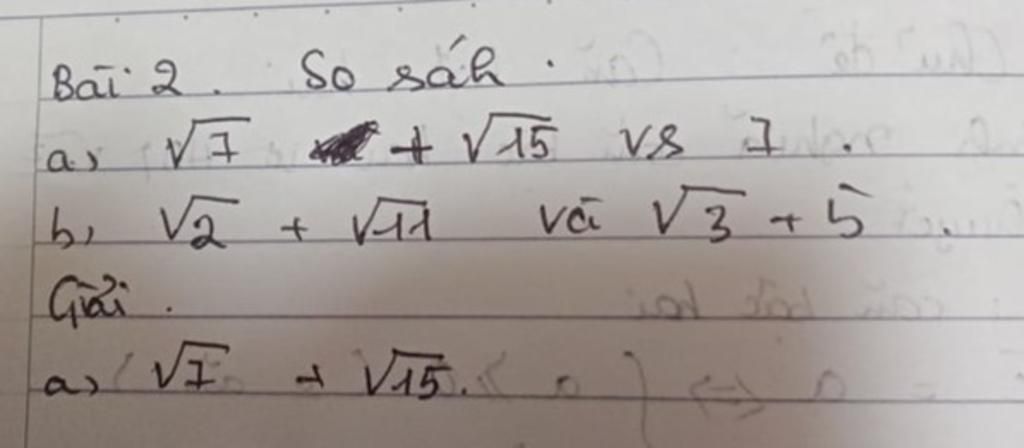 Bài 2. So sánh.
a) √7 + √15 vs 7.
b) √2 + √11 và √3 + 5.
Giải.
a) √7 + √15.